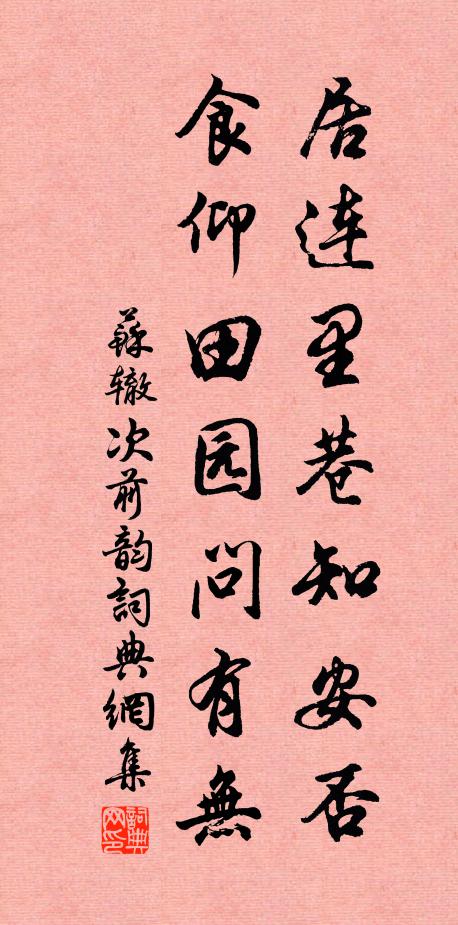 居连里巷知安否
食仰田园问有無
蘇辙次前韵詞典網集
詞典网印